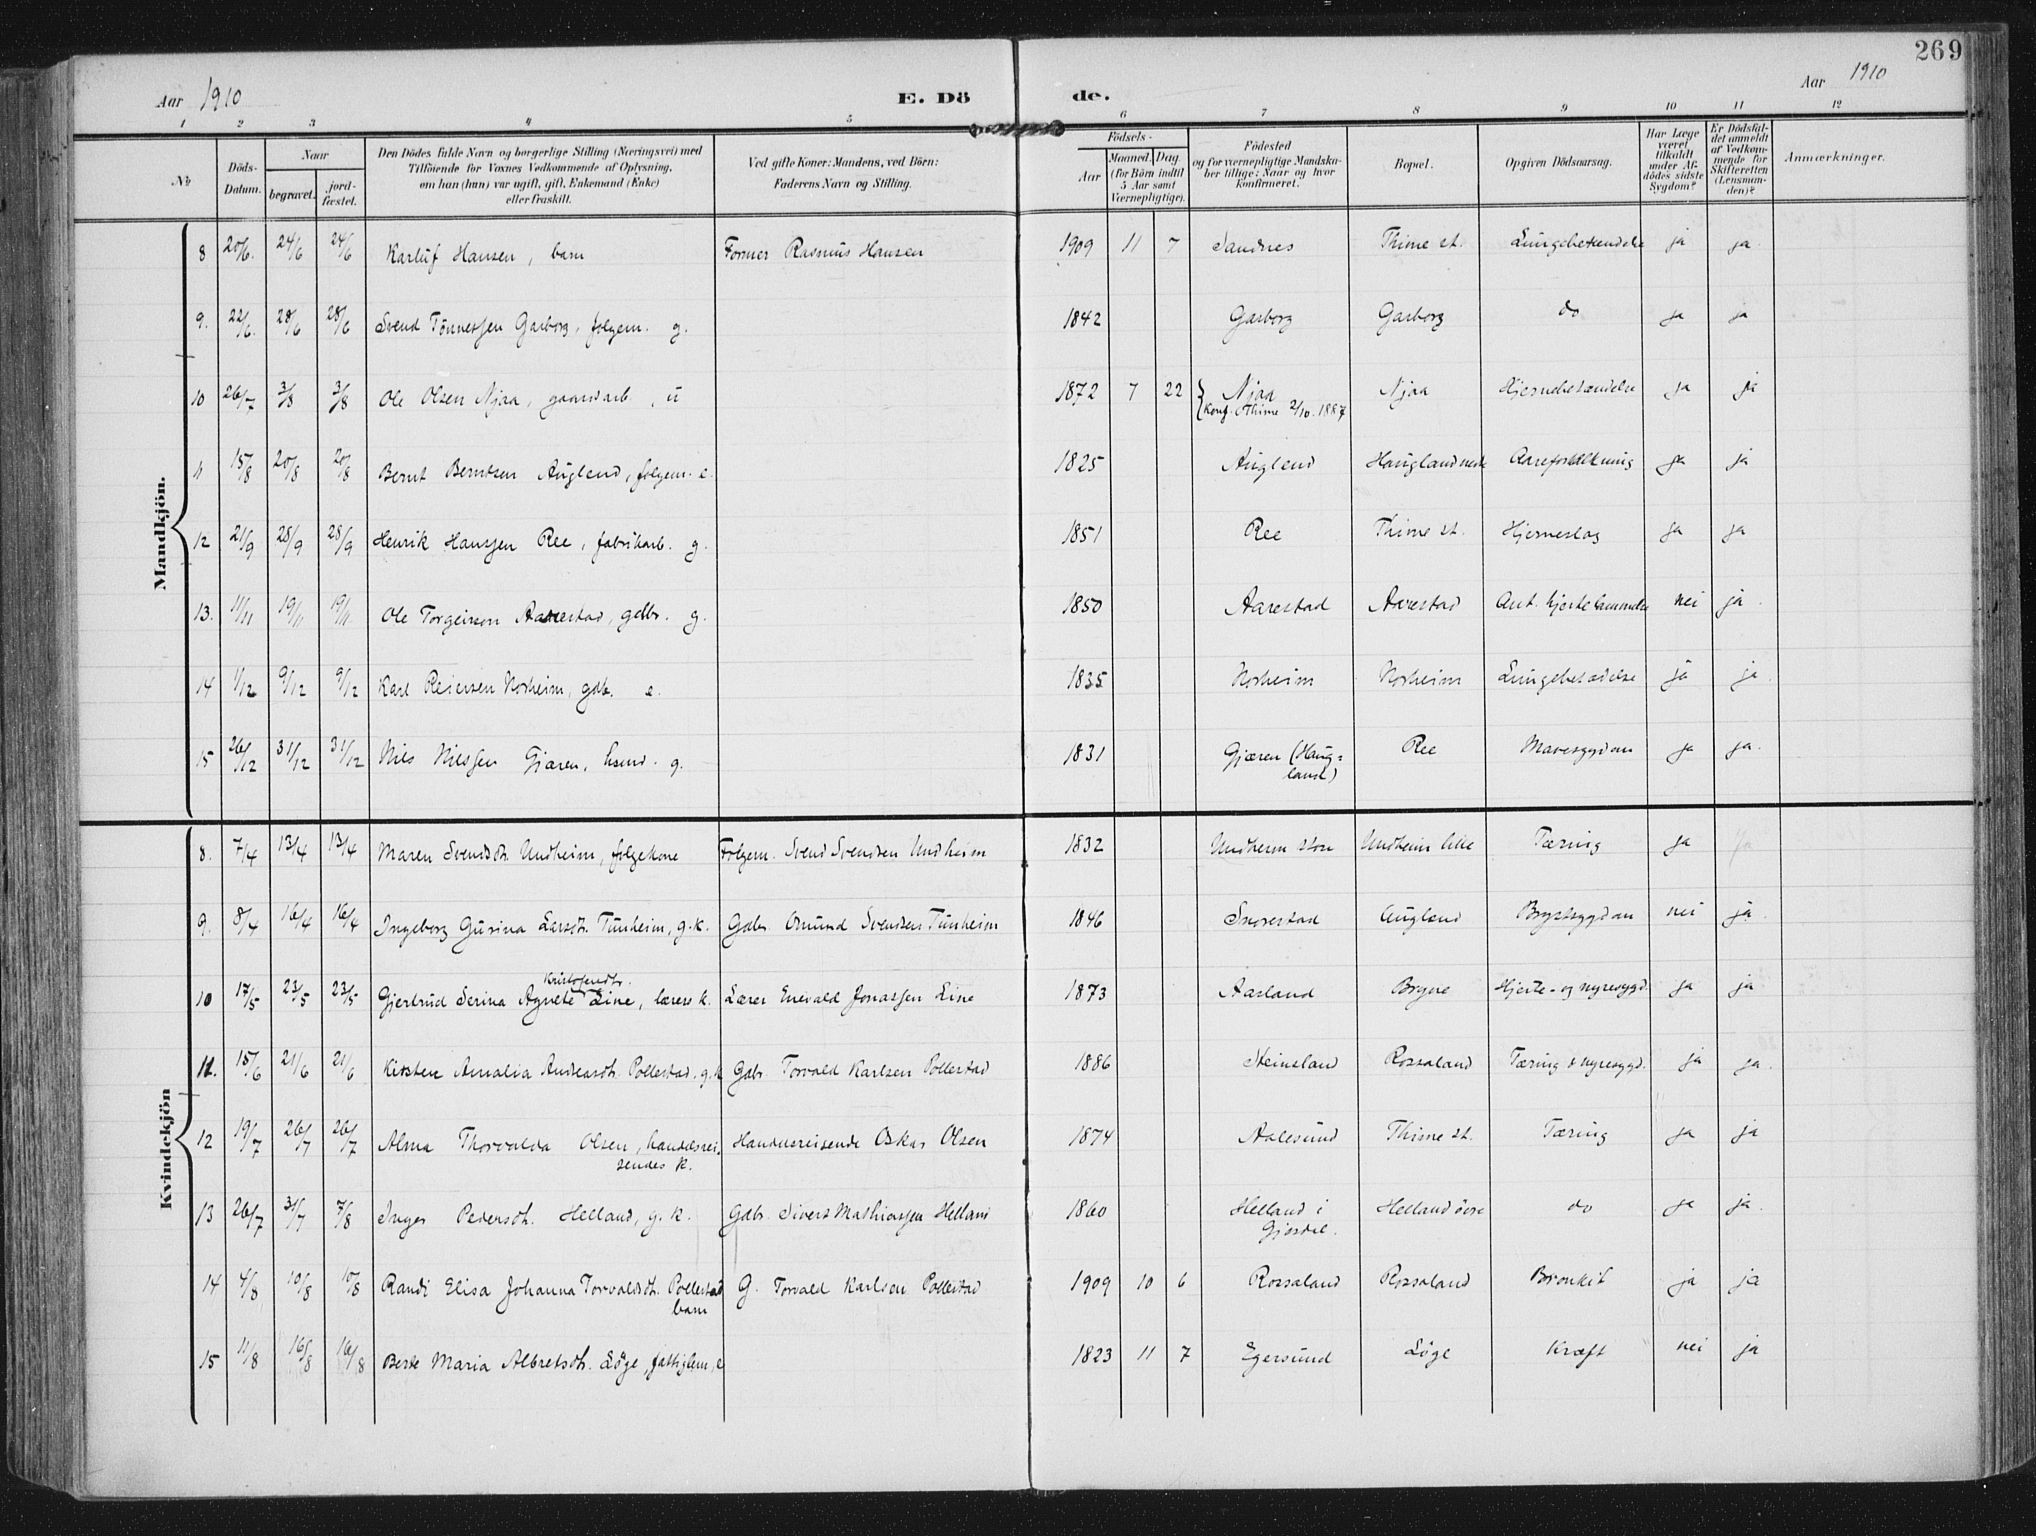 269
Aar 1910
E. Dö de.
Aar 1910
1 2 3 4 5 6 7 8 9 10 11 12
No
Döds-Datum.
Naar
begravet.
jord-fæstet.
Den Dödes fulde Navn og borgerlige Stilling (Næringsvei) med
Tilföiende for Voxnes Vedkommende af Oplysning,
om han (hun) var ugift, gift, Enkemand (Enke)
eller fraskilt.
Ved gifte Koner: Mandens, ved Börn:
Faderens Navn og Stilling.
Födsels-
Aar
Maaned. Dag.
(for Börn indtil
5 Aar samt
Værnepligtige).
Födested
og for værnepligtige Mandska-
ber tillige: Naar og hvor
konfirmeret.
Bopæl.
Opgiven Dödsaarsag.
Har Læge
været
tilkaldt
under Af-
dödes sidste
Sygdom?
Er Dödsfal-
det anmeldt
af Vedkom-
mende for
Skifteretten
(Lensman-
den)?
Anmærkninger.
Mandkjön.
8 20/6. 24/6 24/6 Karluf Hansen, barn Former Rasmus Hansen 1909 11 7 Sandnes Thime st. Lungebetændelse ja ja.
9. 22/6. 28/6 28/6 Svend Tönnessen Garborg, folgem. g. 1842 Garborg Garborg do ja ja
10 26/7 3/8 3/8 Ole Olsen Njaa, gaardarb., u 1872 7 22 Njaa Njaa Hjernebetændelse ja ja
Konf. Thime 2/10. 1887
11 15/8 20/8 20/8 Bernt Berntsen Auglend, folgem. e. 1825 Auglend Hauglandneste Aareforkalkning ja ja
12 21/9 28/9 28/9 Henrik Hanssen Ree, fabrikarb. g. 1851 Ree Thime st. Hjerneslag ja ja
13. 11/11 19/11 19/11 Ole Torgeirson Aarestad, gdbr. g. 1850 Aarestad Aarestad Ant. hjertelammelse nei ja.
14 1/12 9/12 9/12 Karl Reiersen Norheim, gdb. e. 1835 Norheim Norheim Lungebetædelse ja ja.
15 26/12 31/12 31/12 Nils Nilssen Gjæren, husmd. g. 1831 Gjæren (Haug=
land) Ree Mavesygdom ja ja.
Kvindekjön
8. 7/4 13/4 13/4 Maren Svendsdt. Undheim, folgekone Folgem. Svend Svendsen Undheim 1832 Undheim store Undheim lille Tæring ja ja
9. 8/4 16/4 16/4 Ingeborg Gurina Larsdt. Tunheim, g.k. Gdbr. Omund Svendsen Tunheim 1846 Snorestad Auglend Brystsygdom nei ja.
Kristofersdt.
10 17/5 23/5 23/5 Gjertrud Serina Agnete Line, lærers k. Lærer Enevald Jonassen Line 1873 Aasland Bryne Hjerte- og nyresygd. ja ja
11. 15/6 21/6 21/6 Kirsten Amalia Andreasdt. Pollestad. g.k Gdbr Torvald Karlsen Pollestad 1886 Steinsland Rossaland Tæring & nyresygd. ja ja.
12 19/7 26/7 26/7 Alma Thorvalda Olsen, handelsrei-
sendes k. Handelsreisende Oskar Olsen 1874 Aalesund Thime st. Tæring ja ja
13 26/7 31/7 7/8 Inger Pedersdt. Helland, g.k. Gdbr. Sivert Mathiassen Helland 1860 Helland i
Gjesdal. Helland övre do ja ja.
14 4/8 10/8 10/8 Randi Elisa Johanna Torvaldsdt. Pollestad
barn G. Torvald Karlson Pollestad 1909 10 6 Rossaland Rossaland Bronkit ja ja
15 11/8 16/8 16/8 Berte Maria Albretsdt. Löge, fattiglem, e 1823 11 7 Egersund Löge Kræft nei ja